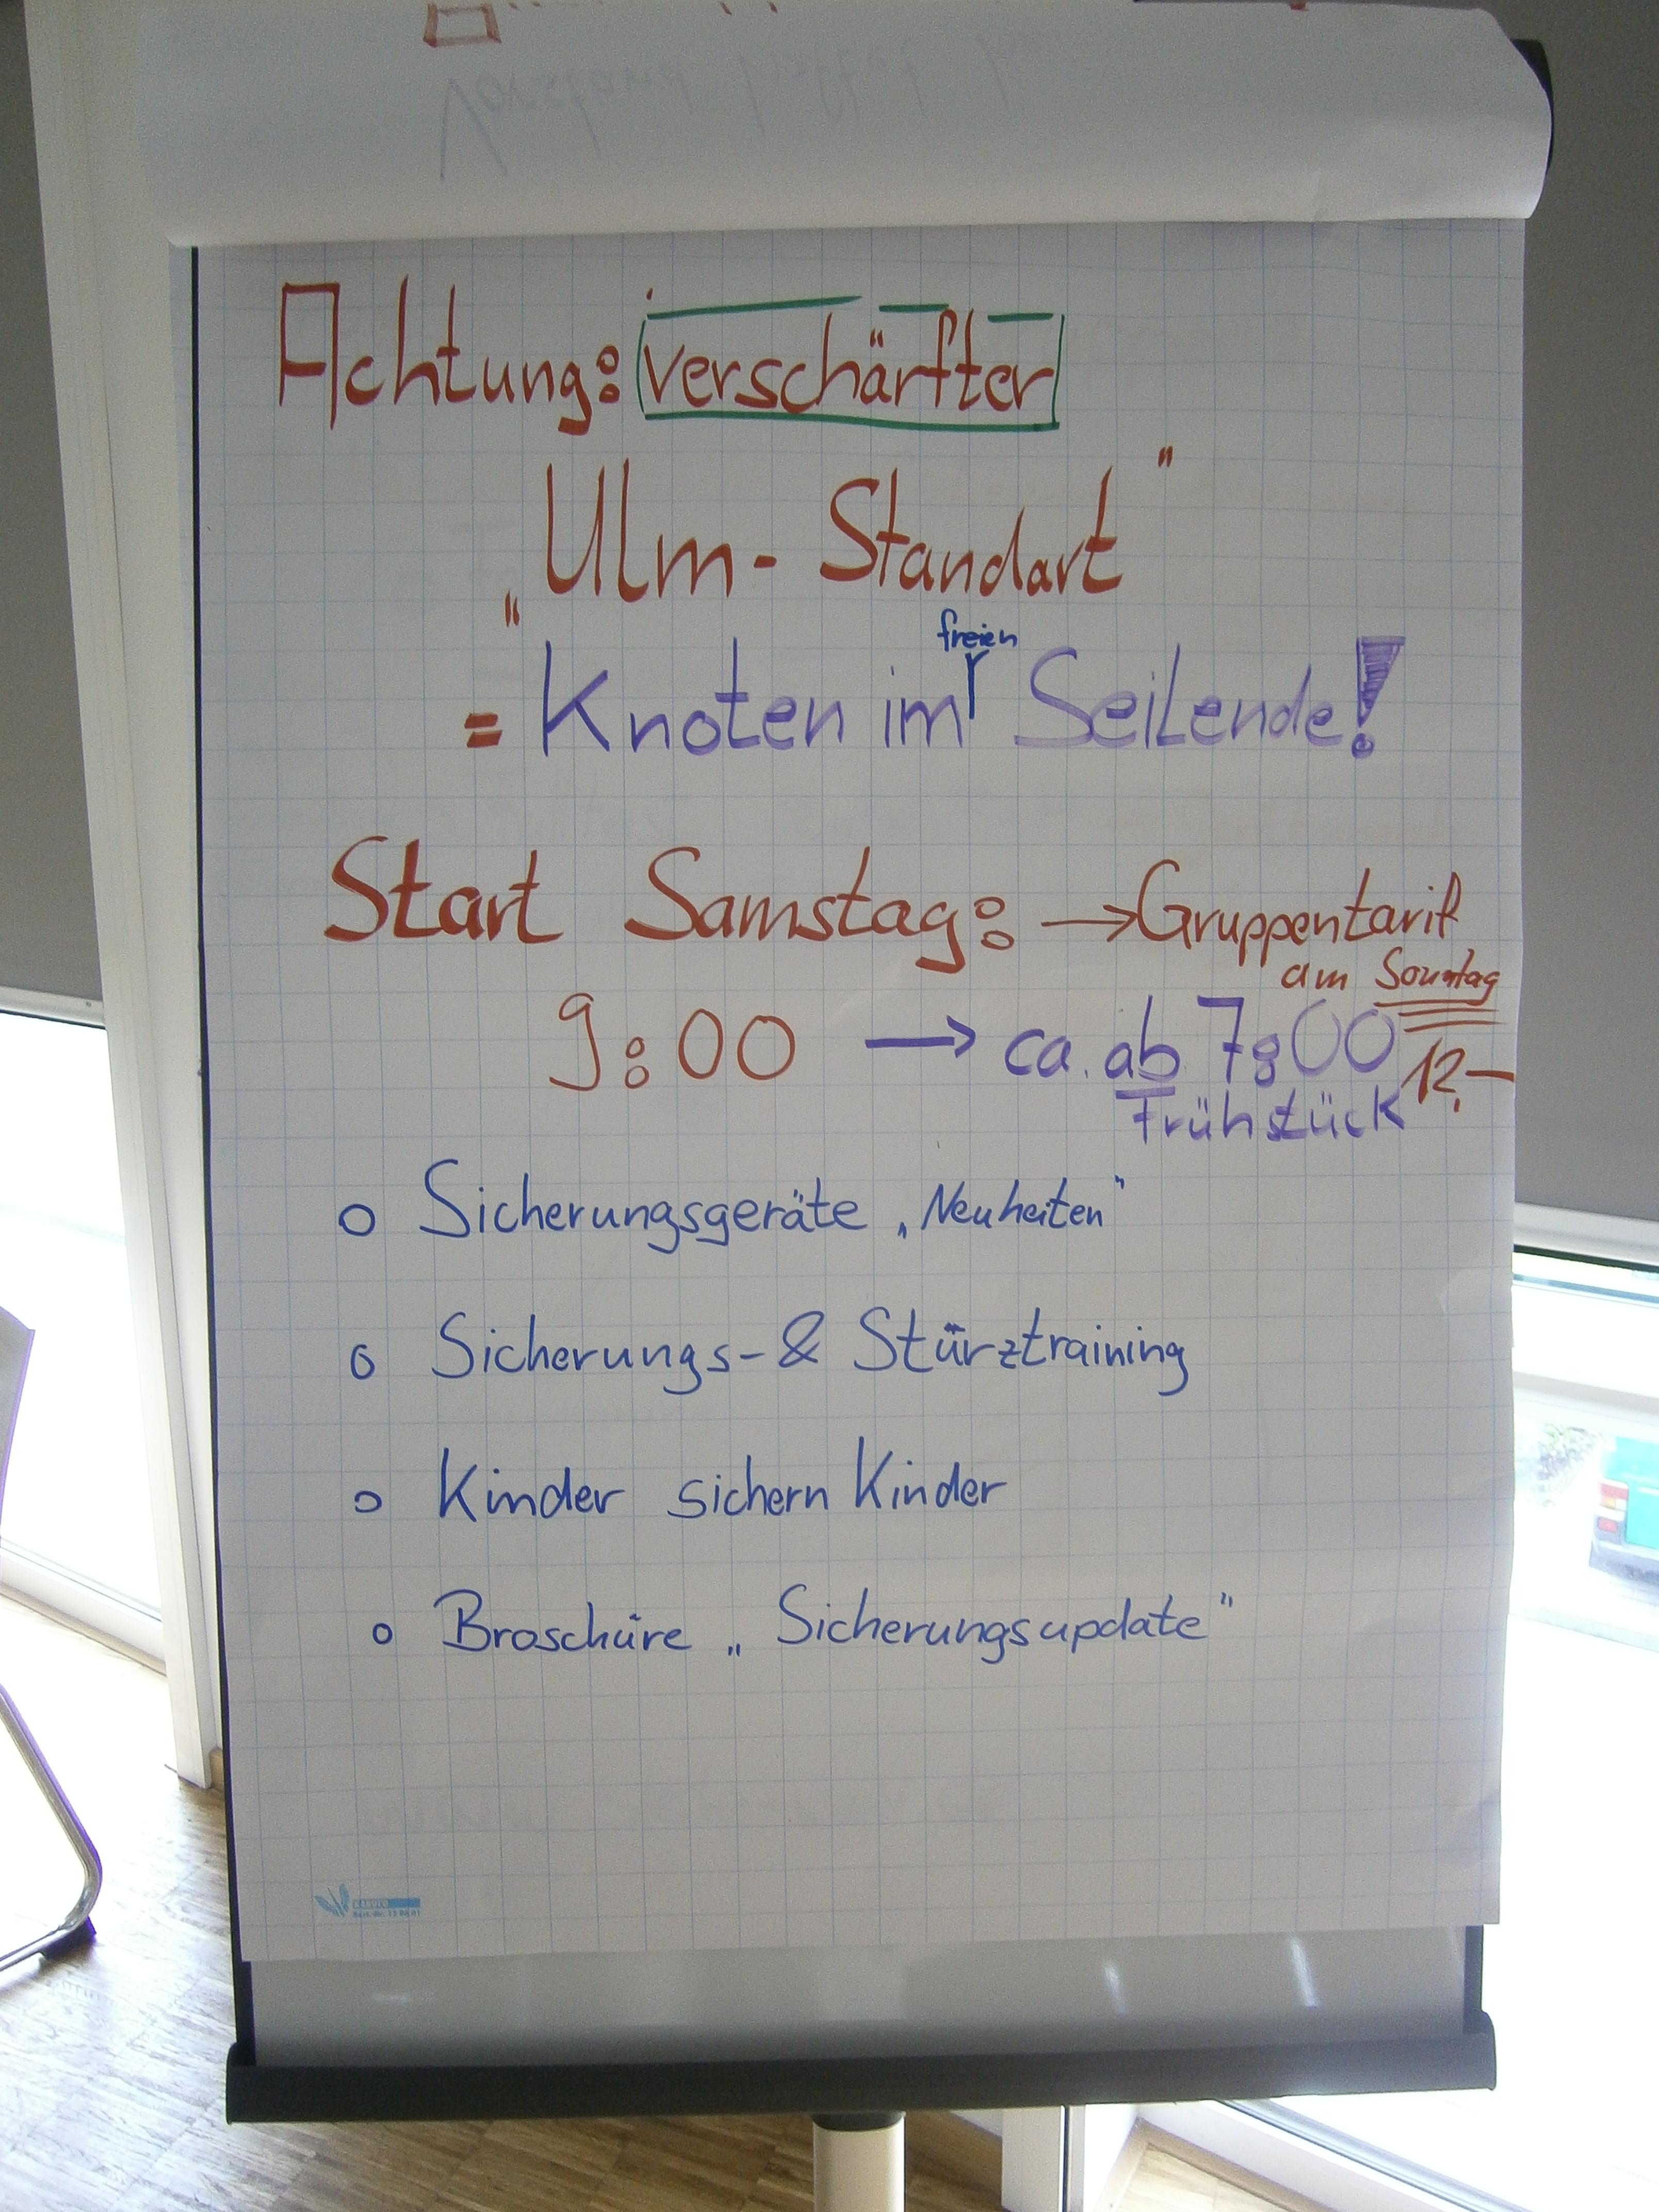 Achtung: verschärfter
„Ulm - Standart"
freien
= Knoten im Seilende!
Start Samstag: → Gruppentarif
am Sonntag
9:00 → ca. ab 7:00
12,—
Frühstück
o Sicherungsgeräte „Neuheiten"
o Sicherungs- & Stürztraining
o Kinder sichern Kinder
o Broschüre „Sicherungsupdate"